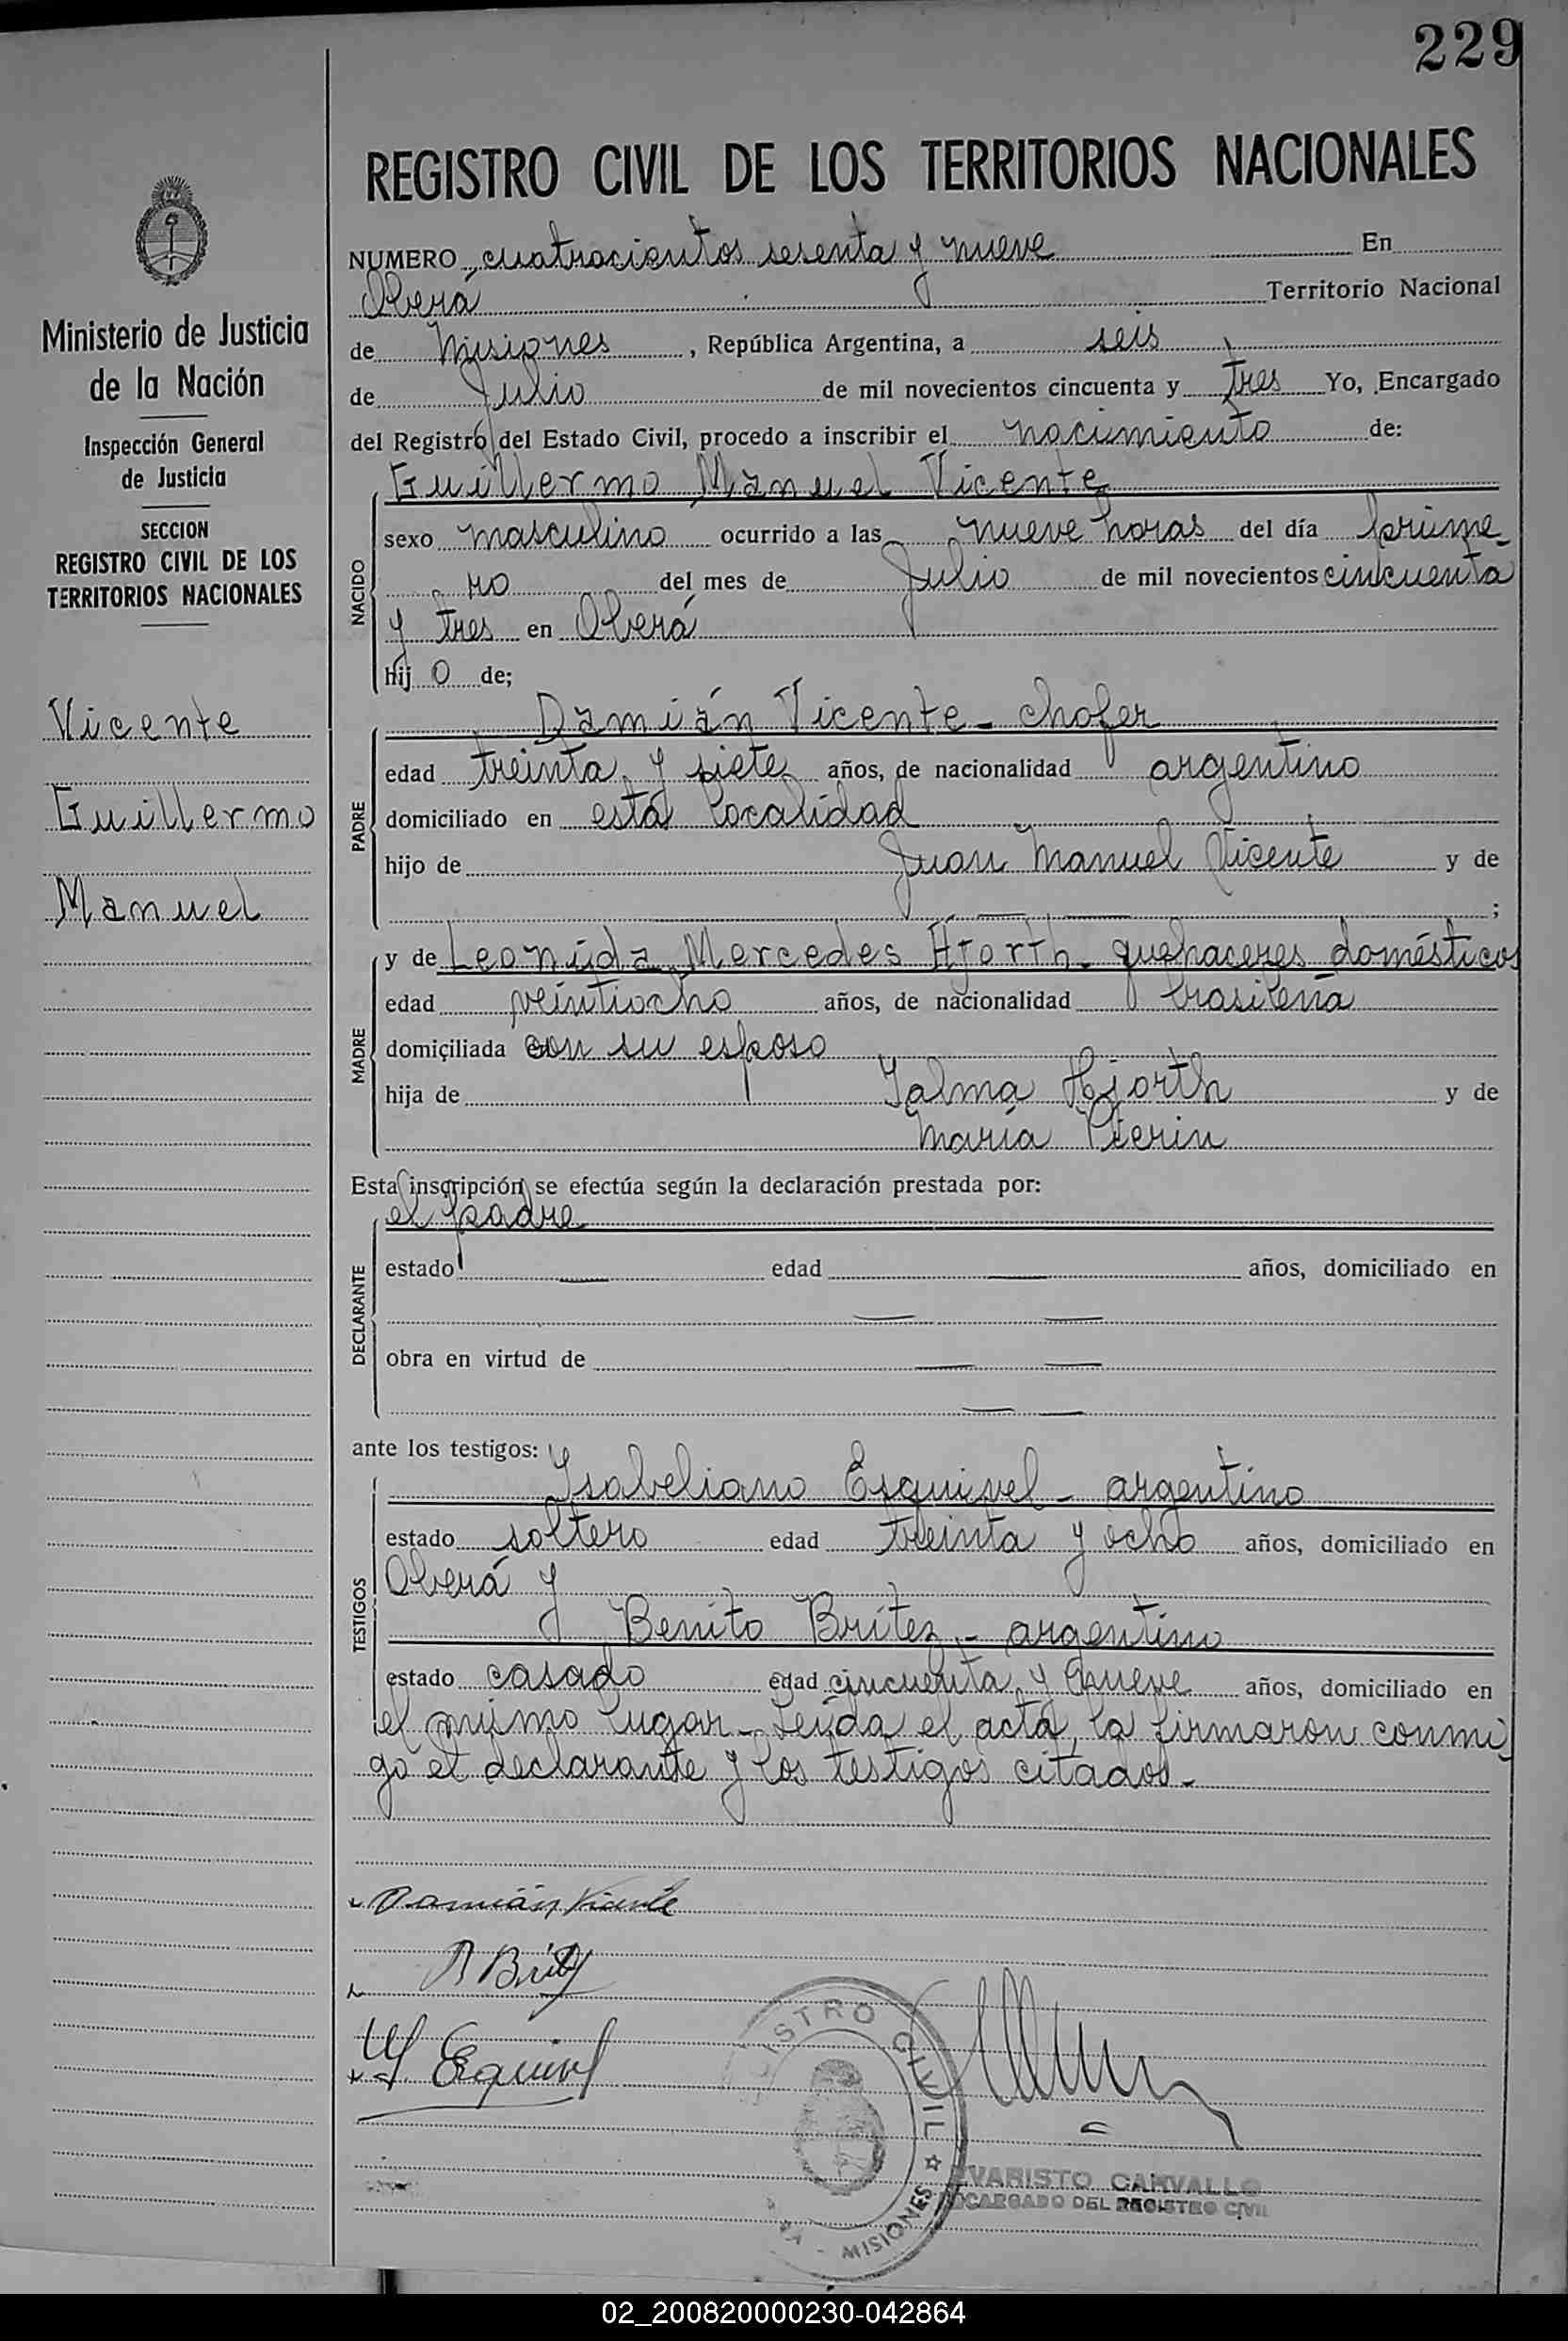 229
REGISTRO CIVIL DE LOS TERRITORIOS NACIONALES
Ministerio de Justicia
de la Nación
Inspección General
de Justicia
SECCION
REGISTRO CIVIL DE LOS
TERRITORIOS NACIONALES
Vicente
Guillermo
Manuel
NUMERO cuatrocientos sesenta y nueve En
Oberá Territorio Nacional
de Misiones, República Argentina, a seis
de Julio de mil novecientos cincuenta y tres Yo, Encargado
del Registro del Estado Civil, procedo a inscribir el nacimiento de:
Guillermo Manuel Vicente
NACIDO
sexo masculino ocurrido a las nueve horas del día prime-
ro del mes de Julio de mil novecientos cincuenta
y tres en Oberá
hij o de;
Damián Vicente - chofer
PADRE
edad treinta y siete años, de nacionalidad argentino
domiciliado en esta localidad
hijo de Juan Manuel Vicente y de
— — ;
y de Leonida Mercedes Hjorth - quehaceres domésticos
MADRE
edad veintiocho años, de nacionalidad brasileña
domiciliada con su esposo
hija de Jalma Hjorth y de
María Pierin
Esta inscripción se efectúa según la declaración prestada por:
el padre
DECLARANTE
estado — edad — años, domiciliado en
— —
obra en virtud de — —
— —
ante los testigos:
Ysabeliano Esquivel - argentino
TESTIGOS
estado soltero edad treinta y ocho años, domiciliado en
Oberá y
Benito Britez - argentino
estado casado edad cincuenta y nueve años, domiciliado en
el mismo lugar - Leída el acta, la firmaron conmi
go el declarante y los testigos citados.-
Damián Vicente
B Britez
Y Esquivel
ISTRO CIVIL
MISIONES
EVARISTO CARVALLO
ENCARGADO DEL REGISTRO CIVIL
02_200820000230-042864